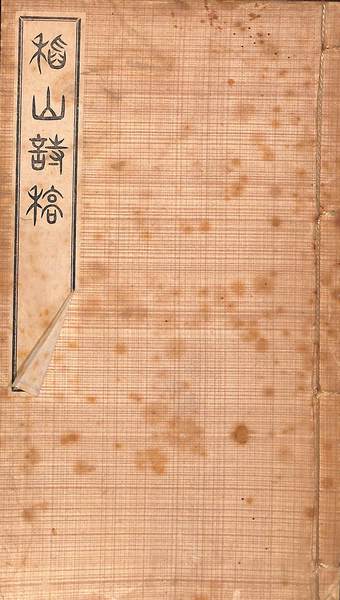 稻山詩稿